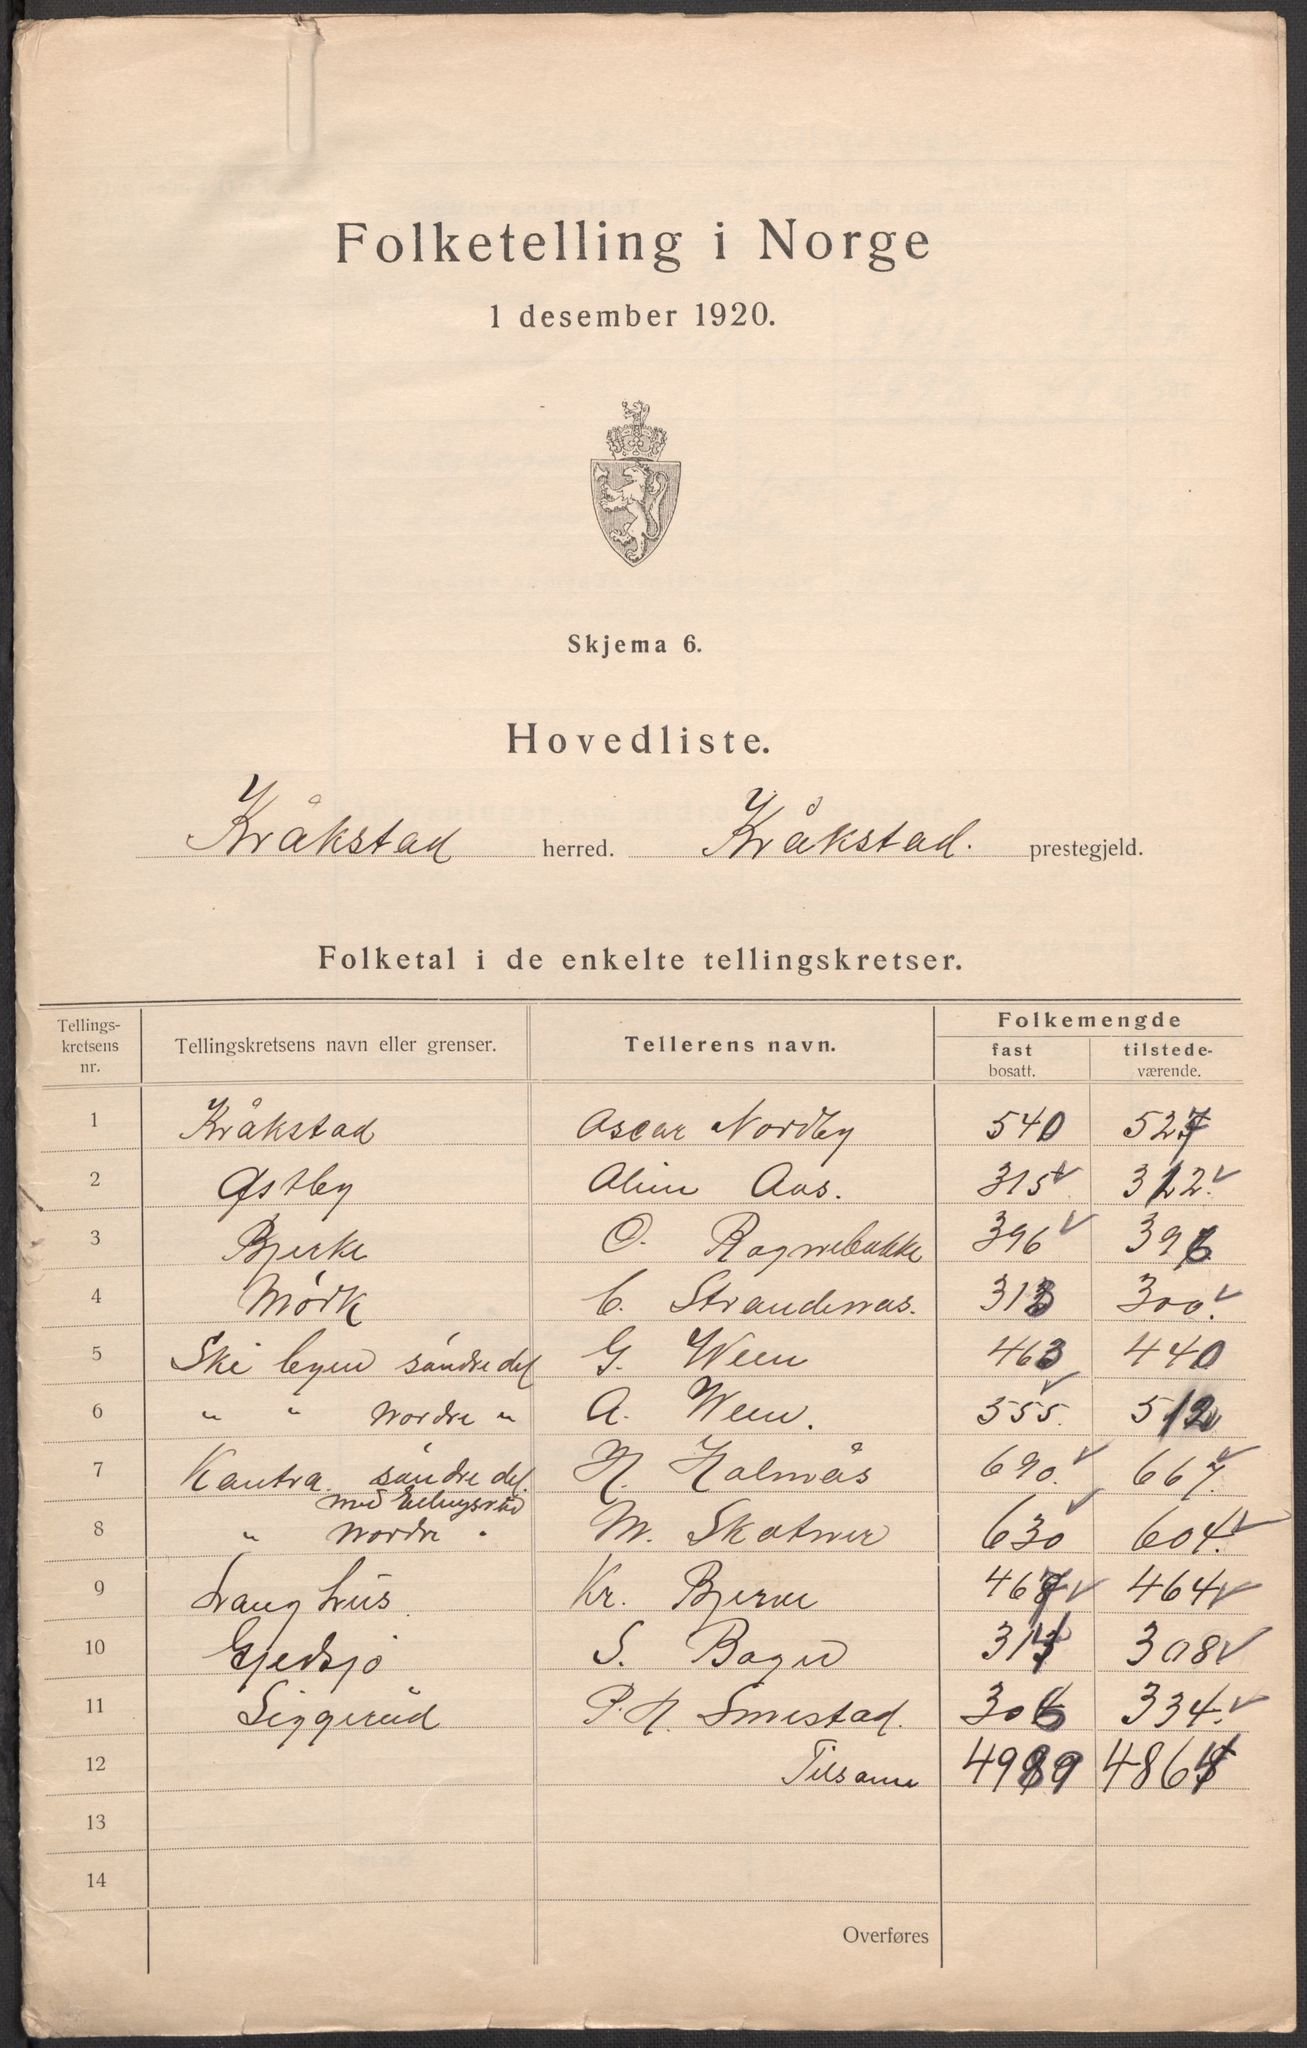 Folketelling i Norge
1 desember 1920.
Skjema 6.
Hovedliste.
Kråkstad herred. Kråkstad. prestegjeld.
Folketal i de enkelte tellingskretser.
Tellings-kretsens nr. Tellingskretsens navn eller grenser. Tellerens navn. Folkemengde
fast bosatt. tilstede-værende.
1 Kråkstad Oscar Nordby 540 527
2 Østby Alim Aas. 315 312.
3 Bjerke O. Rognebakke 396 396
4 Mörk C. Strandenæs. 313 300.
5 Ski byen söndre del G. Ween 463 440
6 " " nordre " A. Ween. 555. 512
7 Kantra söndre del. H. Holmås 690. 667.
med
8 " nordre " M. Skotner 630 604.
9 Langhus. Kr. Bjerke 467 464
10 Gjedsjö S. 314 308
11 Siggerud P. H. Smestad. 306 334.
12 Tilsame 4989 4864
13
14
Overføres